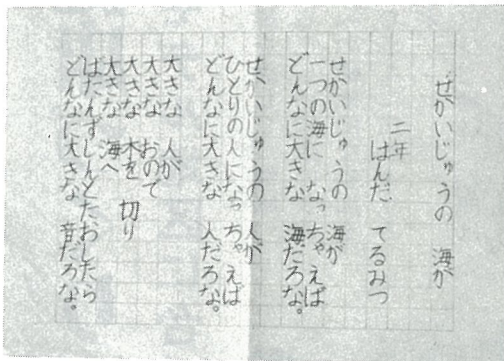 せかいじゅうの　海が
二年
はんだ　てるみつ
せかいじゅうの　海が
一つの海に　なっちゃえば
どんなに大きな　海だろな。
せかいじゅうの　人が
ひとりの人になっちゃえば
どんなに大きな　人だろな。
大きな　人が
大きな　おので
大きな　木を　切り
大きな　海へ
ばたんずしんとたおしたら
どんなに大きな　音だろな。